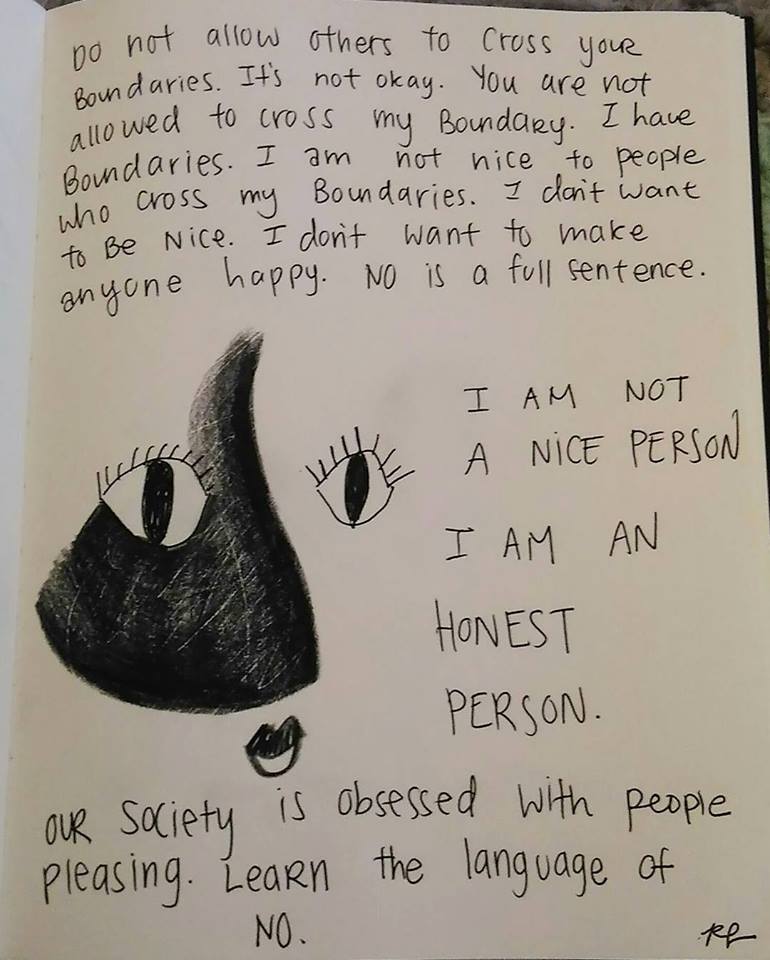 Do not allow others to cross your
Boundaries. It's not okay. You are not
allowed to cross my Boundary. I have
Boundaries. I am not nice to people
who cross my Boundaries. I don't want
to Be Nice. I don't want to make
anyone happy. NO is a full sentence.
I AM NOT
A NICE PERSON
I AM AN
HONEST
PERSON.
OUR Society is obsessed with people
pleasing. Learn the language of
NO.